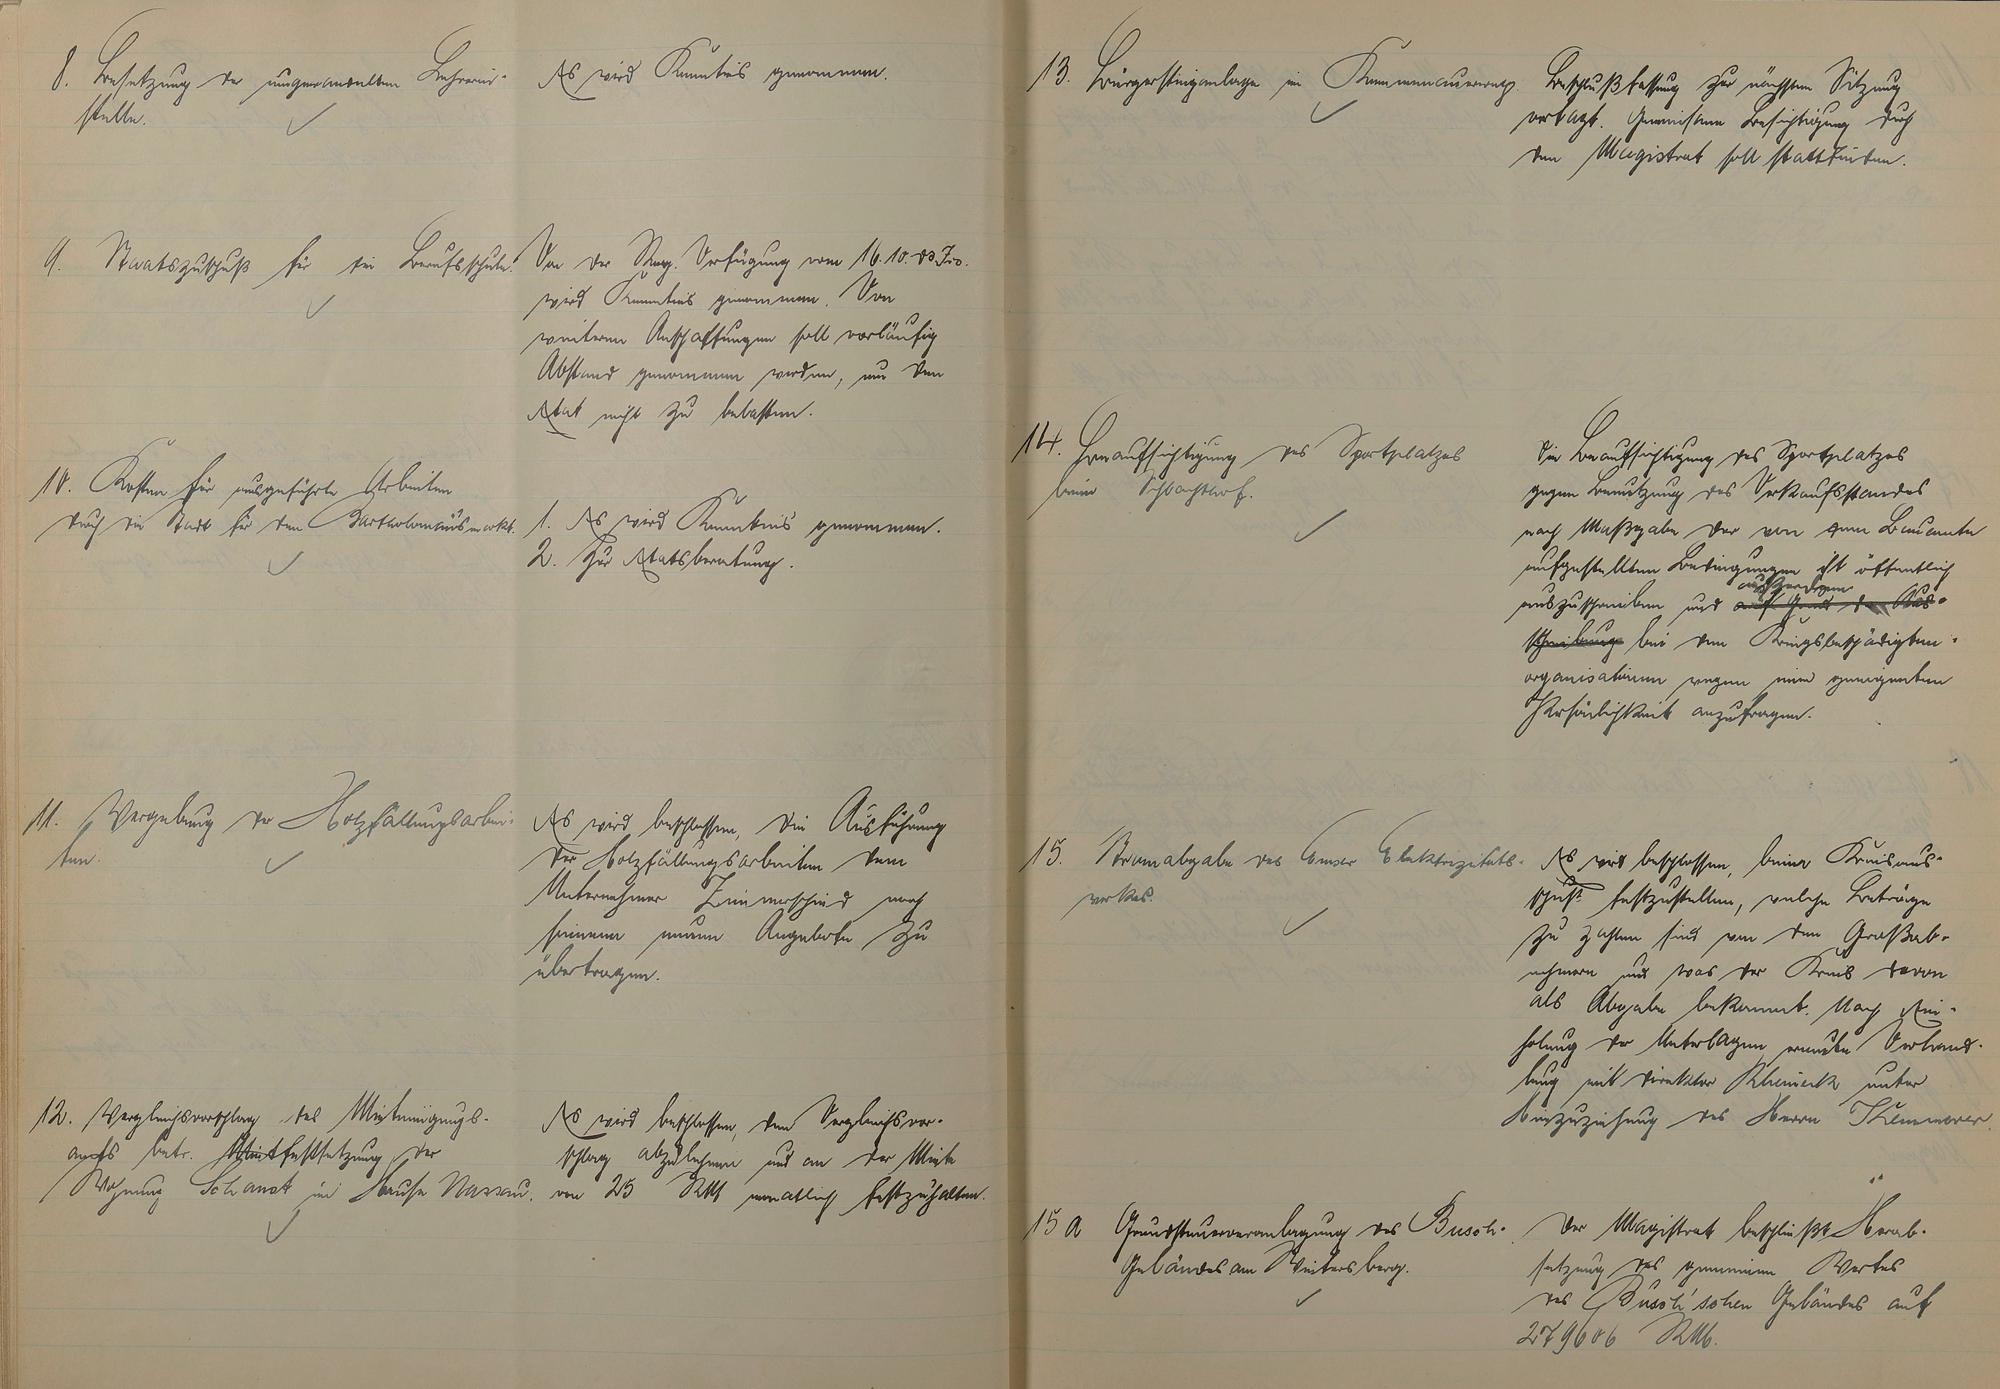 8. Besetzung der umgewandelten Lehrerin-
stelle.
Es wird Kenntnis genommen.
9. Staatszuschuß für die Berufsschule.
Von der Reg. Verfügung vom 16.10. ds. Jrs.
wird Kenntnis genommen. Von
weiteren Anschaffungen soll vorläufig
Abstand genommen werden, um den
Etat nicht zu belasten.
10. Kosten für ausgeführte Arbeiten
durch die Stadt für den Bartholomäusmarkt.
1. Es wird Kenntnis genommen.
2. Zur Etatsberatung.
11. Vergebung der Holzfällungsarbei-
ten.
Es wird beschlossen, die Ausführung
der Holzfällungsarbeiten dem
Unternehmer Zimmerschied nach
seinem neuen Angebote zu
übertragen.
12. Vergleichsvorschlag des Mieteinigungs-
amts betr. Mietfestsetzung der
Wohnung Schanat im Hause Nassau.
Es wird beschlossen, den Vergleichsvor-
schlag abzulehnen und an der Miete
von 25 RM monatlich festzuhalten.
13. Bürgersteiganlage im
Beschlußfassung zur nächsten Sitzung
vertagt. Gemeinsame Besichtigung durch
den Magistrat soll stattfinden.
14. Beaufsichtigung des Sportplatzes
beim Schlachthof.
Die Beaufsichtigung des Sportplatzes
gegen Benutzung des Verkaufsstandes
nach Maßgabe der von dem Bauamte
aufgestellten Bedingungen ist öffentlich
außerdem
auszuschreiben und auf Grund der Aus-
schreibung bei den Kriegsbeschädigten-
organisationen wegen einer geeigneten
Persönlichkeit anzufragen.
15. Stromabgabe des Emser Elektrizitäts-
werkes.
Es wird beschlossen, beim Kreisaus-
schuß festzustellen, welche Beträge
zu zahlen sind von den Großab-
nehmern und was der Kreis davon
als Abgabe bekommt. Nach Ein-
holung der Unterlagen erneute Verhand-
lung mit Direktor unter
Hinzuziehung des Herrn Kemmerer.
15a Grundsteuerveranlagung des Busch-
Gebäudes am Wintersberg.
Der Magistrat beschließt Herab-
setzung des gemeinen Wertes
des Busch'schen Gebäudes auf
279606 RM.